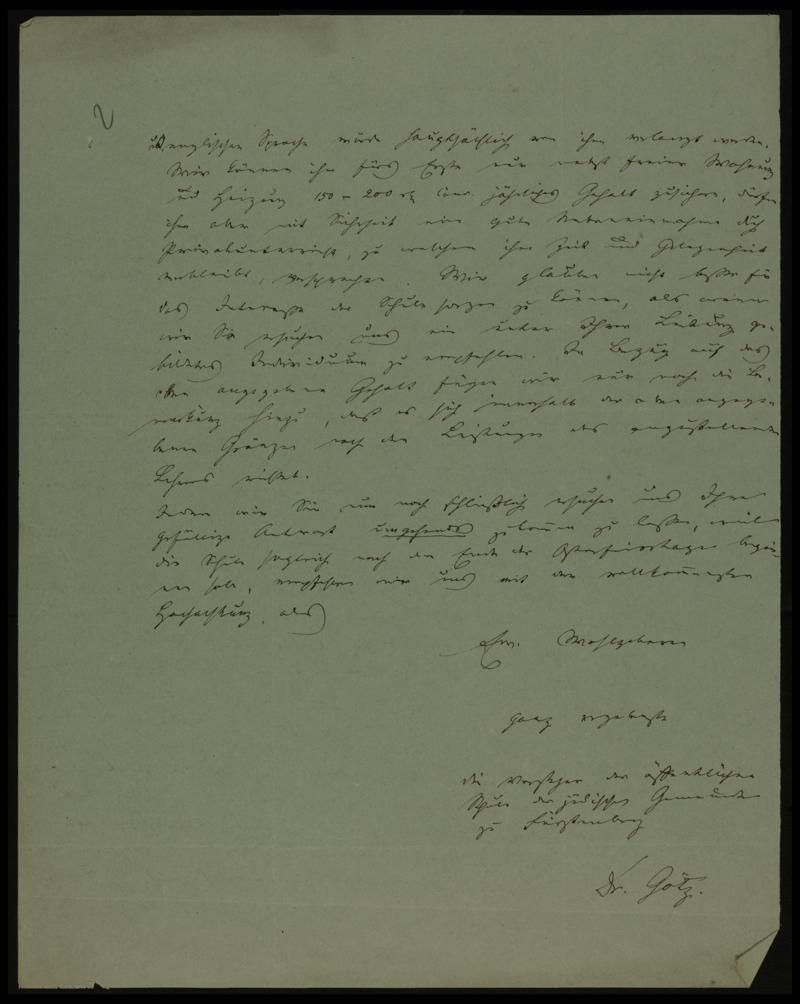 2
u. englischen Sprache würde hauptsächlich von ihm verlangt werden.
Wir können ihm fürs Erste nur nebst freier Wohnung
und Heizung 150 – 200 rt Cour. jährliches Gehalt zusichern, dürfen
ihm aber mit Sicherheit eine gute Nebeneinnahme dch
Privatunterricht, zu welchem ihm Zeit und Gelegenheit
verbleibt, versprechen. Wir glauben nicht besser für
das Interesse der Schule sorgen zu können, als wenn
wir Sie ersuchen uns ein unter Ihrer Leitung ge-
bildetes Individuum zu empfehlen. In Bezug auf das
oben angegebene Gehalt fügen wir nur noch die Be-
merkung hinzu, daß es sich innerhalb der oben angege-
benen Gränzen nach den Leistungen des anzustellenden
Lehrers richtet.
Indem wir Sie nun noch schließlich ersuchen uns Ihre
gefällige Antwort umgehends zukommen zu lassen, weil
die Schule sogleich nach dem Ende der Osterfeiertage begin-
nen soll, empfehlen wir uns mit der vollkommensten
Hochachtung, als
Ew. Wohlgeboren
ganz ergebenste
die Vorsteher der öffentlichen
Schule der jüdischen Gemeinde
zu Fürstenberg
Dr. Götz.